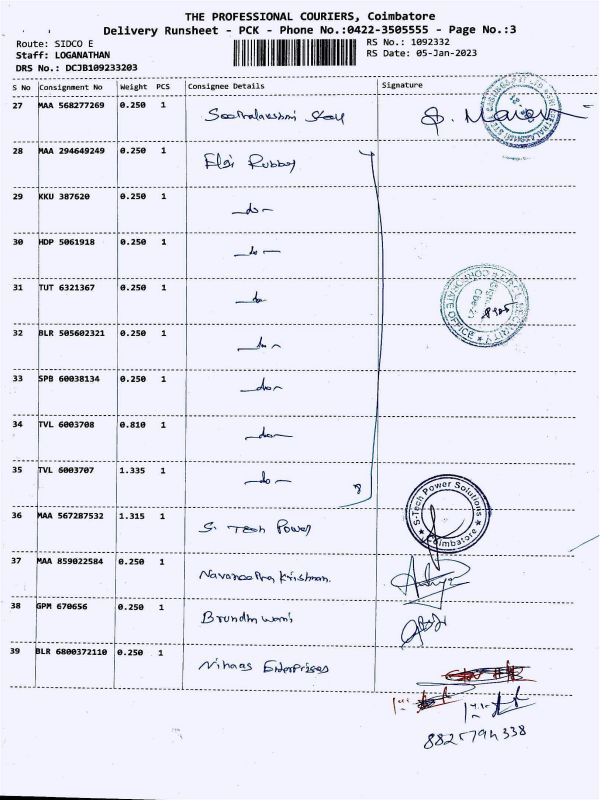 THE PROFESSIONAL COURIERS, Coimbatore
Delivery Runsheet - PCK - Phone No.:0422-3505555 - Page No.:3
Route: SIDCO E
RS No.: 1092332
Staff: LOGANATHAN
RS Date: 05-Jan-2023
DRS No.: DCJB109233203
S No Consignment No Weight PCS Consignee Details Signature
27 MAA 568277269 0.250 1
28 MAA 294649249 0.250 1 Elgi Rubber
29 KKU 387620 0.250 1 -do-
30 HDP 5061918 0.250 1 -do-
31 TUT 6321367 0.250 1 -do-
32 BLR 505602321 0.250 1 -do-
33 SPB 60038134 0.250 1 -do-
34 TVL 6003708 0.810 1 -do-
35 TVL 6003707 1.335 1 -do-
36 MAA 567287532 1.315 1 S. Tech Power
S-Tech Power Solutions
Coimbatore
37 MAA 859022584 0.250 1 Navaneetha Krishnan.
38 GPM 670656 0.250 1
39 BLR 6800372110 0.250 1 Nihaas Enterprises
8825794338